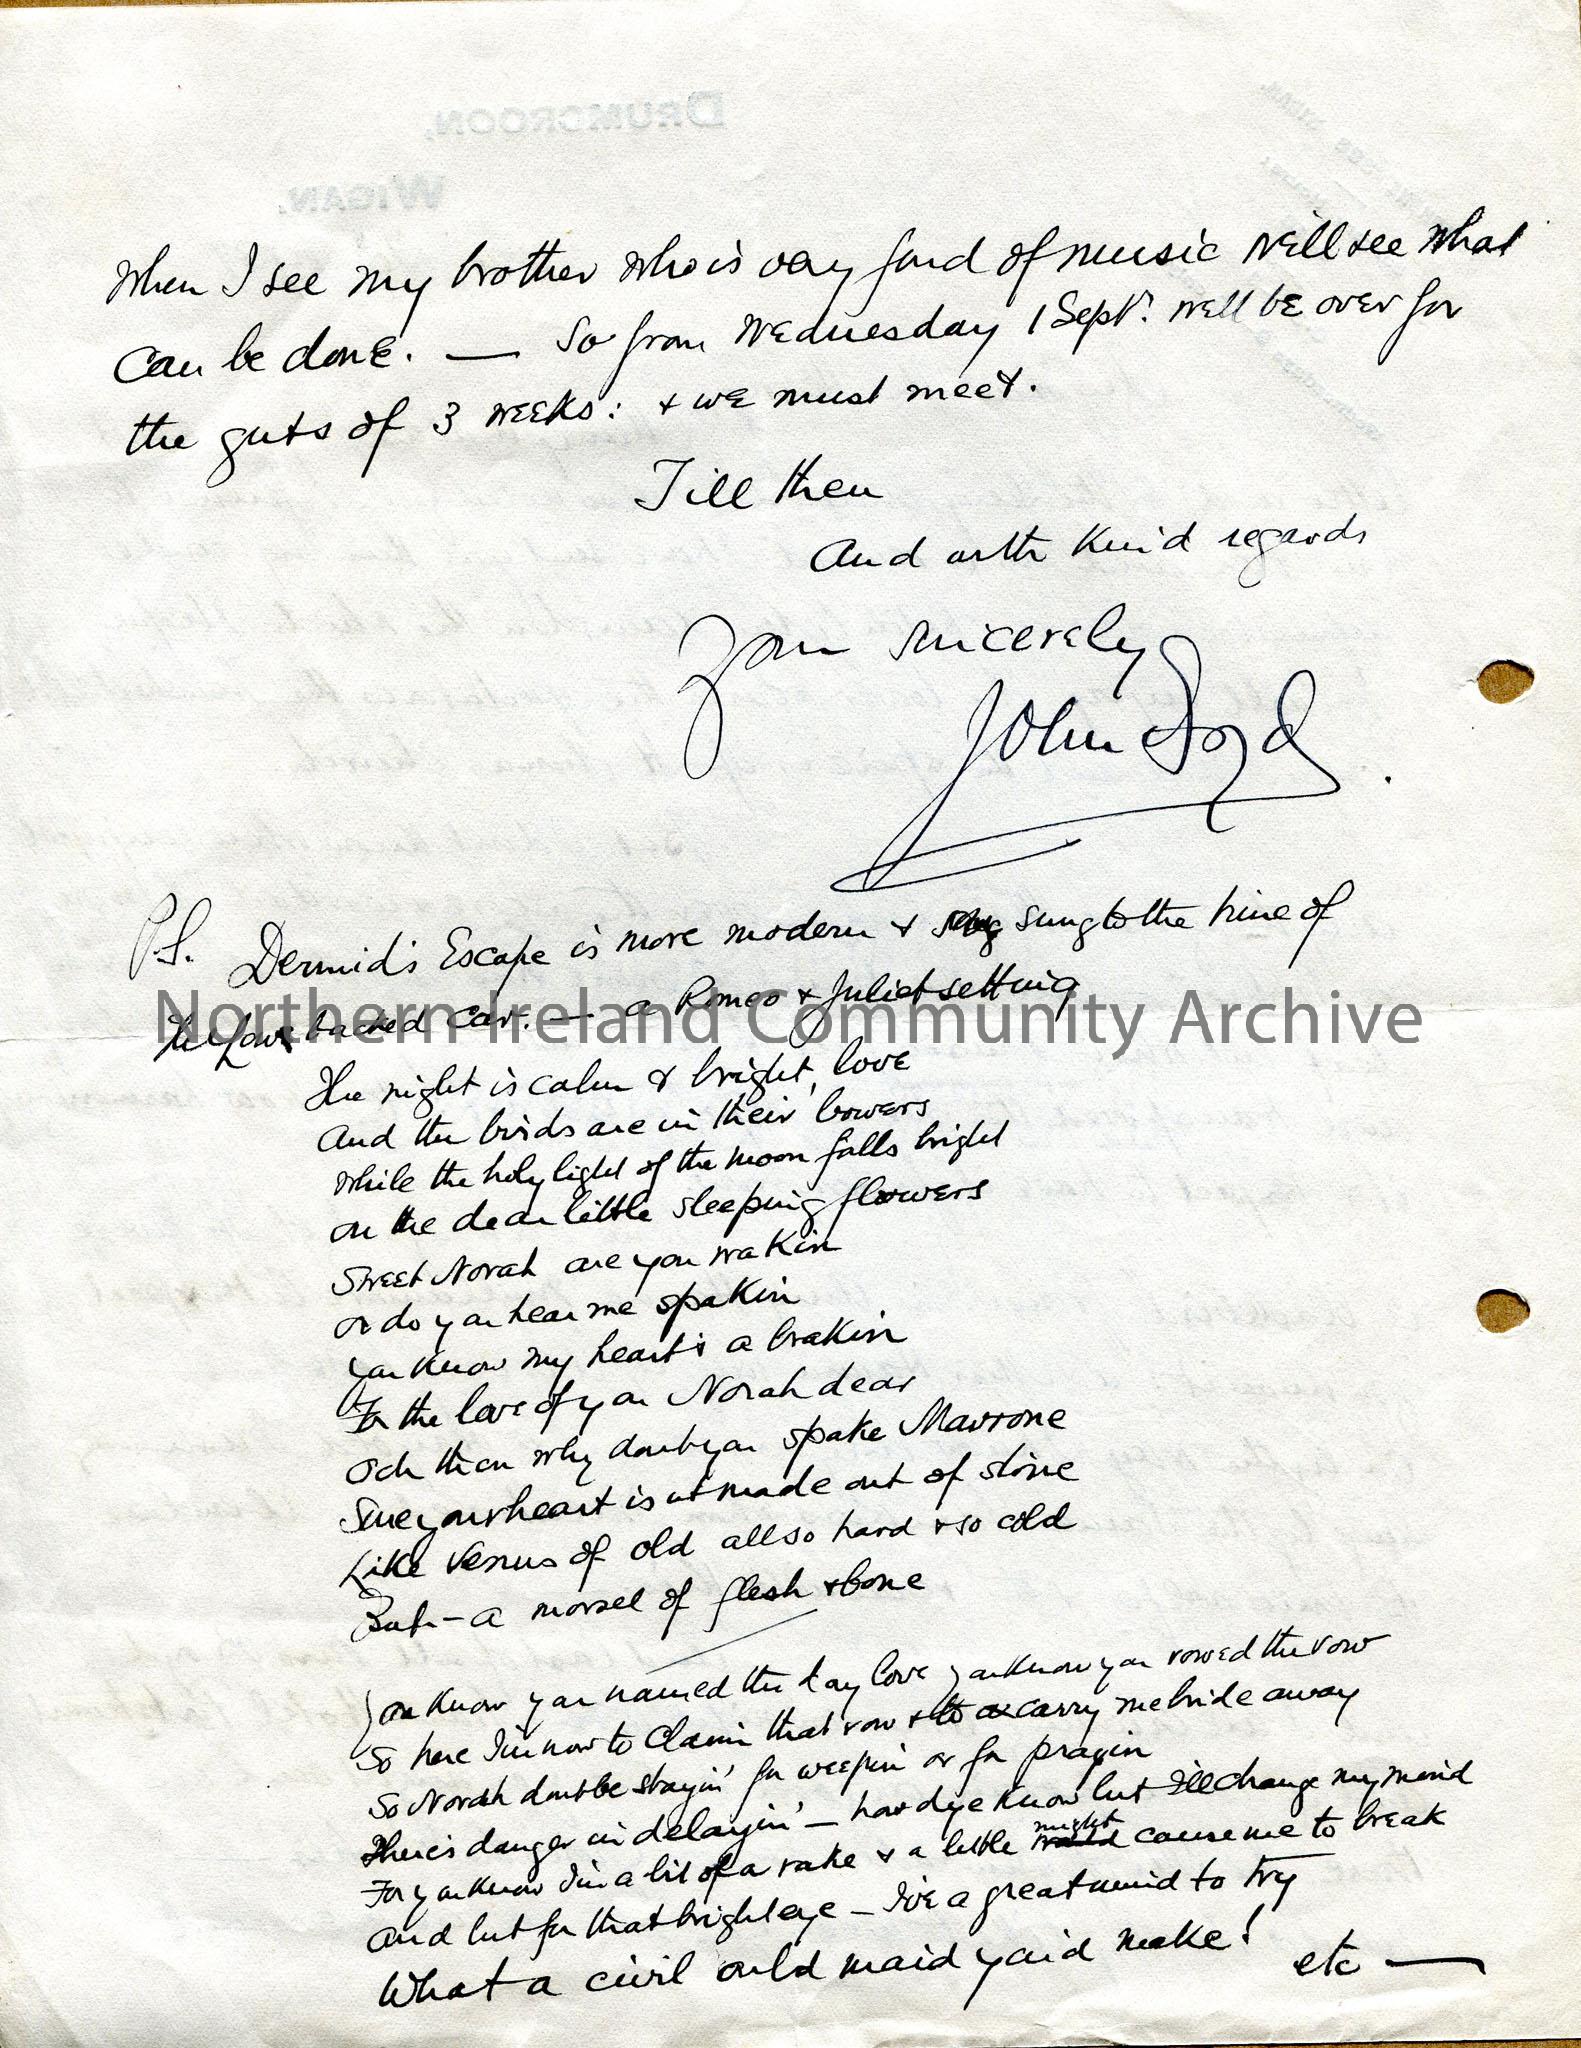 DRUMCROON,
WIGAN.
When I see my brother who is very fond of music we'll see what
can be done. — So from Wednesday 1 Sept. we'll be over for
the guts of 3 weeks: & we must meet.
Till then
And with kind regards
Your sincerely
John Boyd
P.S. Dermid's Escape is more modern & sung to the tune of
The Low backed Car. — a Romeo & Juliet setting
Northern Ireland Community Archive
The night is calm & bright, love
And the birds are in their bowers
While the holy light of the moon falls bright
on the dear little sleeping flowers
Sweet Norah are you wakin
or do you hear me spakin
you know my heart's a brakin
For the love of you Norah dear
Och then why dont you spake Mavrone
Sure your heart is nt made out of stone
Like Venus of old all so hard & so cold
But – a morsel of flesh & bone
You know you named the day love you know you vowed the vow
So here I'm now to claim that vow & to carry me bride away
So Norah dont be stayin' for weepin or for prayin
There's danger in delayin' – how d'ye know but I'll change my mind
For you know I'm a bit of a rake & a little might cause me to break
And but for that bright eye – I've a great mind to try
What a civil ould maid yaid make!
etc —